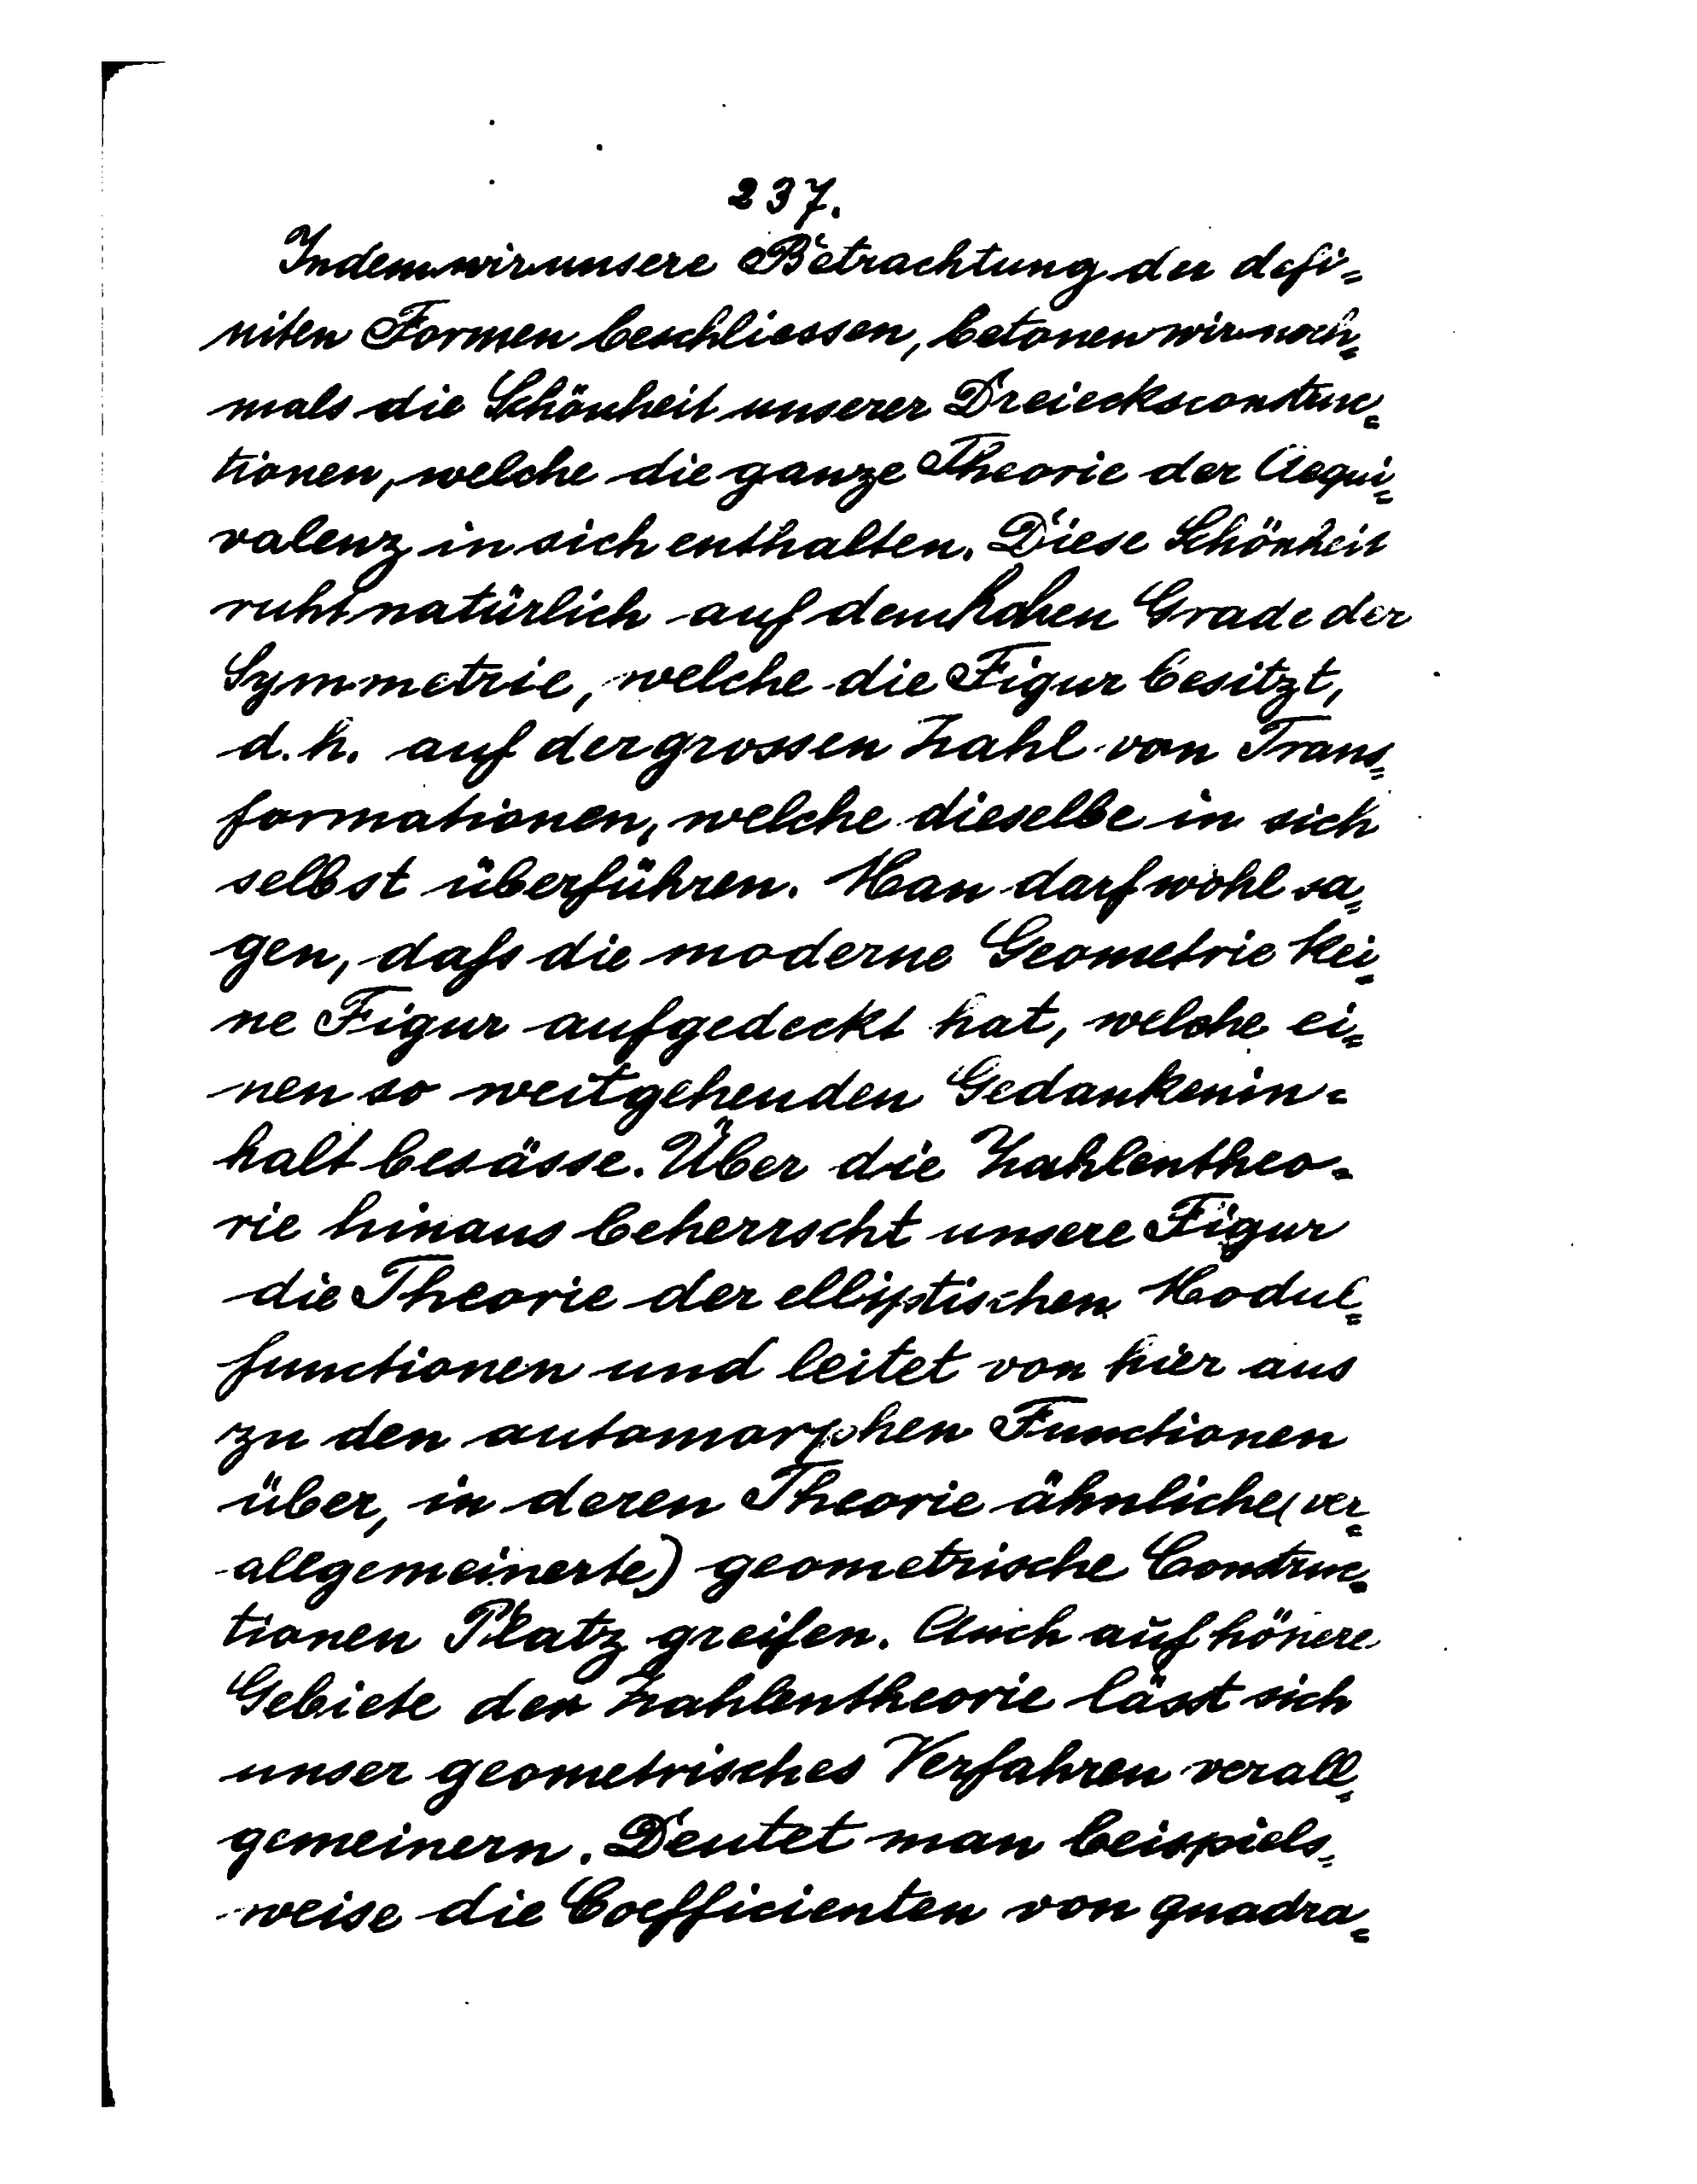 237.
Indem wir unsere Betrachtung der defi=
niten Formen beschliessen, betonen wir noch=
mals die Schönheit unserer Dreiecksconstruc=
tionen, welche die ganze Theorie der Aequi=
valenz in sich enthalten. Diese Schönheit
ruht natürlich auf dem hohen Grade der
Symmetrie, welche die Figur besitzt,
d. h. auf der grossen Zahl von Trans=
formationen, welche dieselbe in sich
selbst überführen. Man darf wohl sa=
gen, dafs die moderne Geometrie kei=
ne Figur aufgedeckt hat, welche ei=
nen so weitgehenden Gedankenin=
halt besässe. Über die Zahlentheo=
rie hinaus beherrscht unsere Figur
die Theorie der elliptischen Modul=
functionen und leitet von hier aus
zu den automorphen Functionen
über, in deren Theorie ähnliche (ver=
allgemeinerte) geometrische Construc=
tionen Platz greifen. Auch auf höhere
Gebiete der Zahlentheorie lässt sich
unser geometrisches Verfahren verall=
gemeinern. Deutet man beispiels=
weise die Coefficienten von quadra=